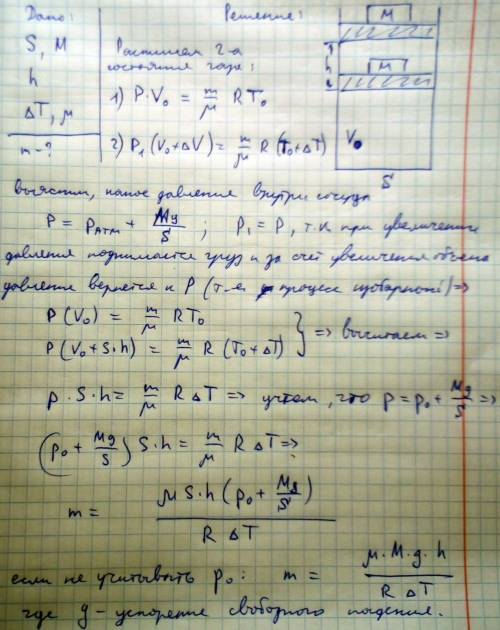 Дано:
Решение:
S, M
h
ΔT, μ
m - ?
Распишем 2-а
состояния газа:
1) P·V₀ = m/μ RT₀
2) P₁(V₀+ΔV) = m/μ R(T₀+ΔT)
M
h
M
V₀
S
выясним, какое давление внутри сосуда
P = Pатм + Mg/S ; P₁ = P, т.к при увеличении
давления поднимается груз и за счет увеличения объема
давление вернется к P (т.е. процесс изобарный) =>
P(V₀) = m/μ RT₀
P(V₀+S·h) = m/μ R(T₀+ΔT) } => вычитаем =>
P·S·h = m/μ RΔT => учтем, что P = P₀ + Mg/S =>
(P₀ + Mg/S) S·h = m/μ RΔT =>
m = μ S·h (P₀ + Mg/S) / RΔT
если не учитывать P₀: m = μ·M·g·h / RΔT
где g - ускорение свободного падения.